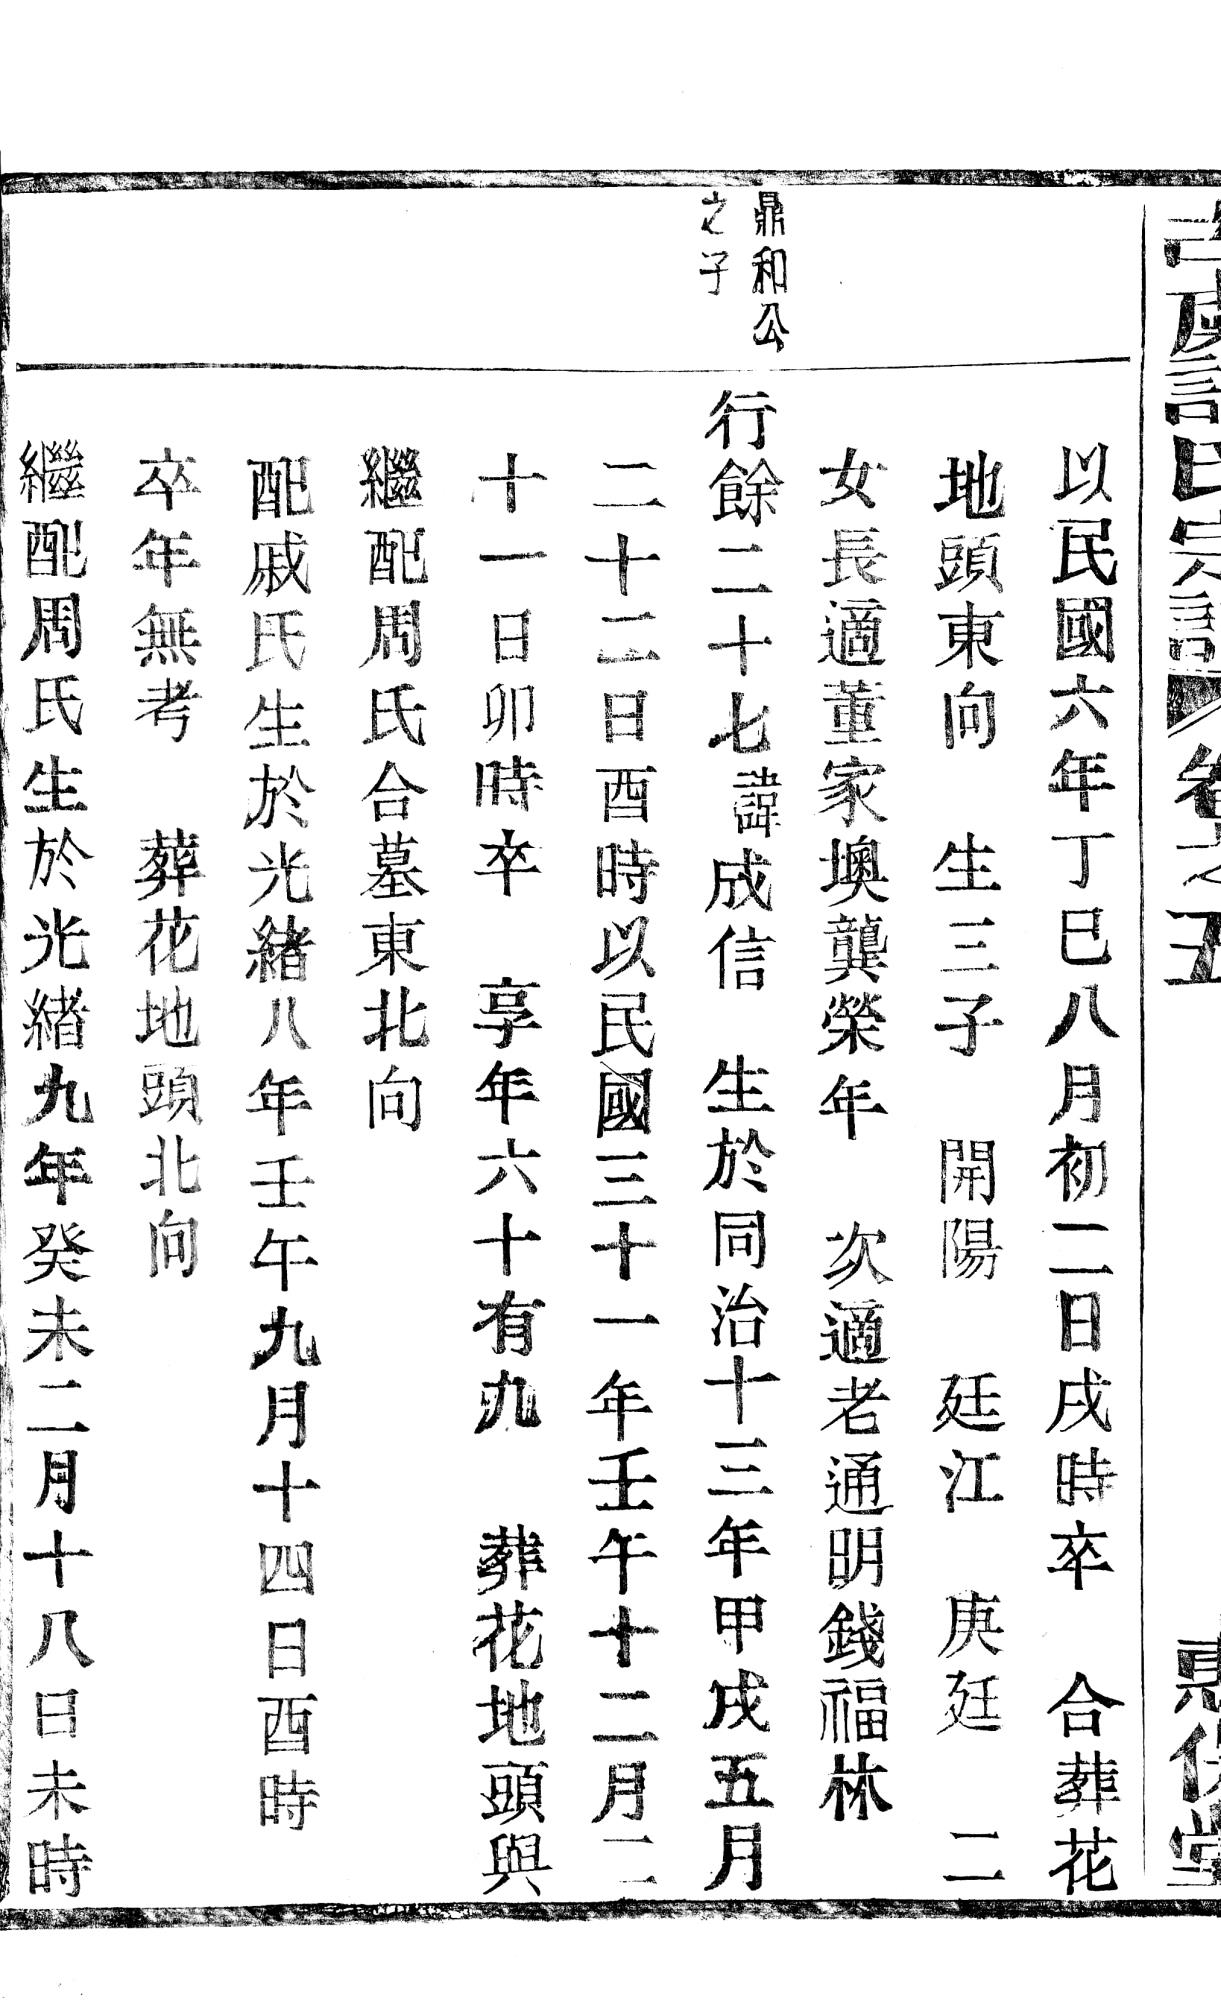 古虞許氏宗譜 卷之五 惠保堂
以民國六年丁巳八月初二日戌時卒 合葬花
地頭東向 生三子 開陽 廷江 庚廷 二
女長適董家墺龔榮年 次適老通明錢福林
鼎和公
之子
行餘二十七諱成信 生於同治十三年甲戌五月
二十二日酉時以民國三十一年壬午十二月二
十一日卯時卒 享年六十有九 葬花地頭與
繼配周氏合墓東北向
配戚氏生於光緒八年壬午九月十四日酉時
卒年無考 葬花地頭北向
繼配周氏生於光緒九年癸未二月十八日未時